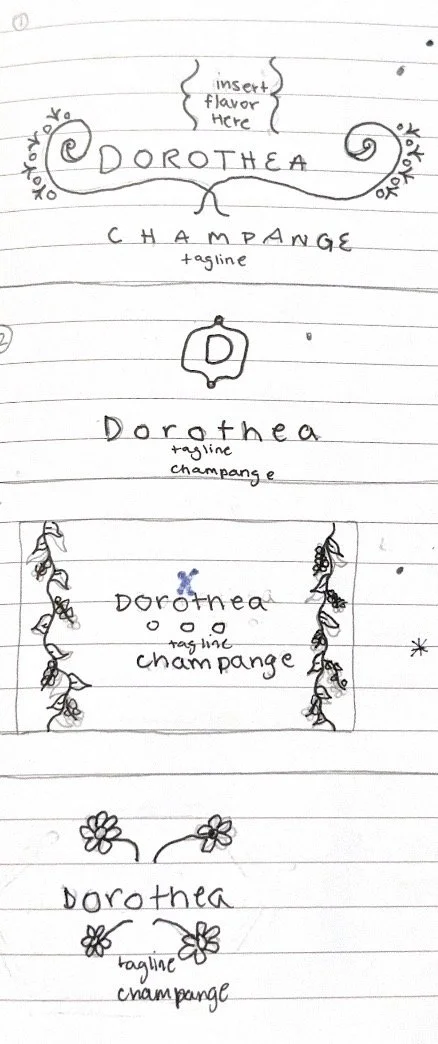 1
insert
flavor
Here
DOROTHEA
CHAMPANGE
tagline
2
D
Dorothea
tagline
champange
X
Dorothea
tagline
champange
*
Dorothea
tagline
champange